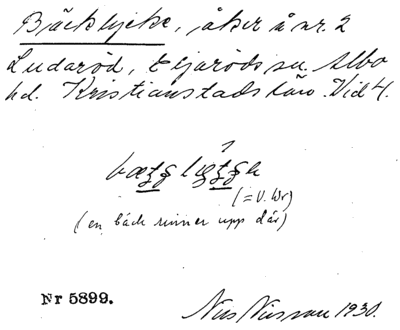 Bäcklycke, åker å nr. 2
Ludaröd, Eljaröds sn. Albo
hd. Kristianstads län. Vid 4.
(= V. Wr)
(en bäck rinner upp där)
Nr 5899.
Nils Nilsson 1930.